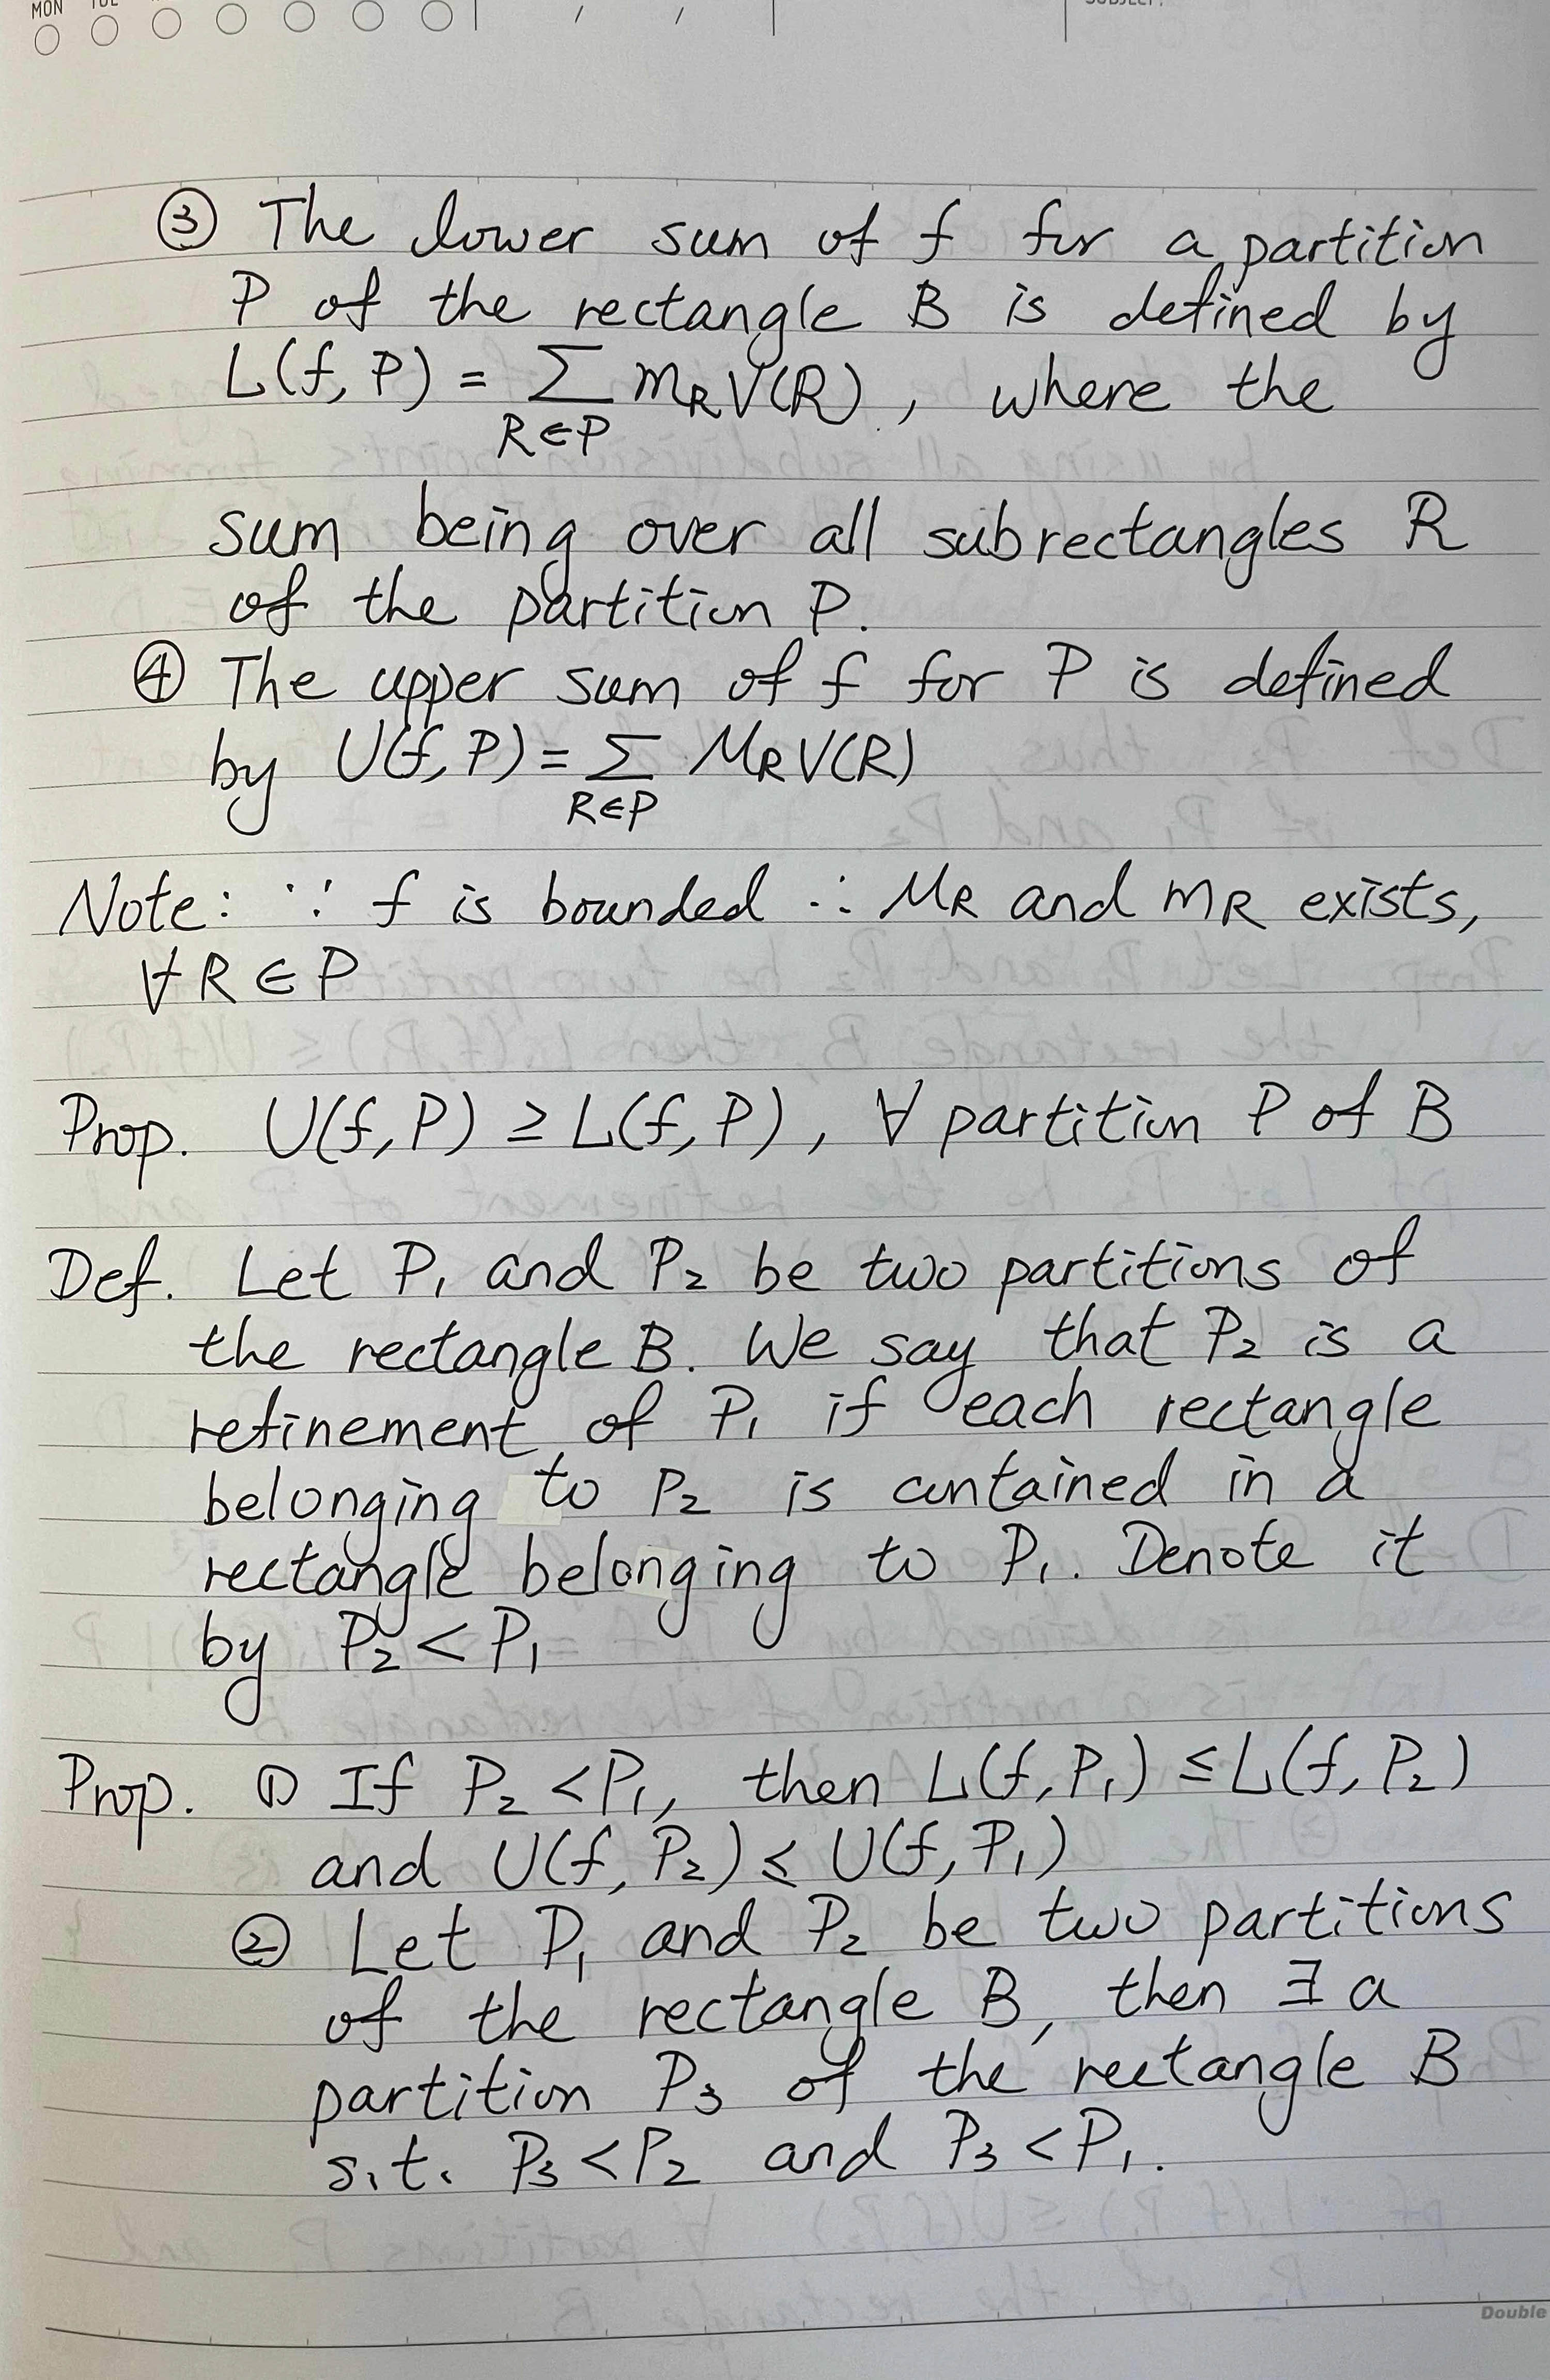 MON TUE
SUBJECT:
③ The lower sum of f for a partition
P of the rectangle B is defined by
L(f, P) = Σ m_R V(R), where the
R∈P
sum being over all subrectangles R
of the partition P.
④ The upper sum of f for P is defined
by U(f, P) = Σ M_R V(R)
R∈P
Note: ∵ f is bounded ∴ M_R and m_R exists,
∀ R ∈ P
Prop. U(f, P) ≥ L(f, P), ∀ partition P of B
Def. Let P₁ and P₂ be two partitions of
the rectangle B. We say that P₂ is a
refinement of P₁ if each rectangle
belonging to P₂ is contained in a
rectangle belonging to P₁. Denote it
by P₂ < P₁
Prop. ① If P₂ < P₁, then L(f, P₁) ≤ L(f, P₂)
and U(f, P₂) ≤ U(f, P₁)
② Let P₁ and P₂ be two partitions
of the rectangle B, then ∃ a
partition P₃ of the rectangle B
s.t. P₃ < P₂ and P₃ < P₁.
Double